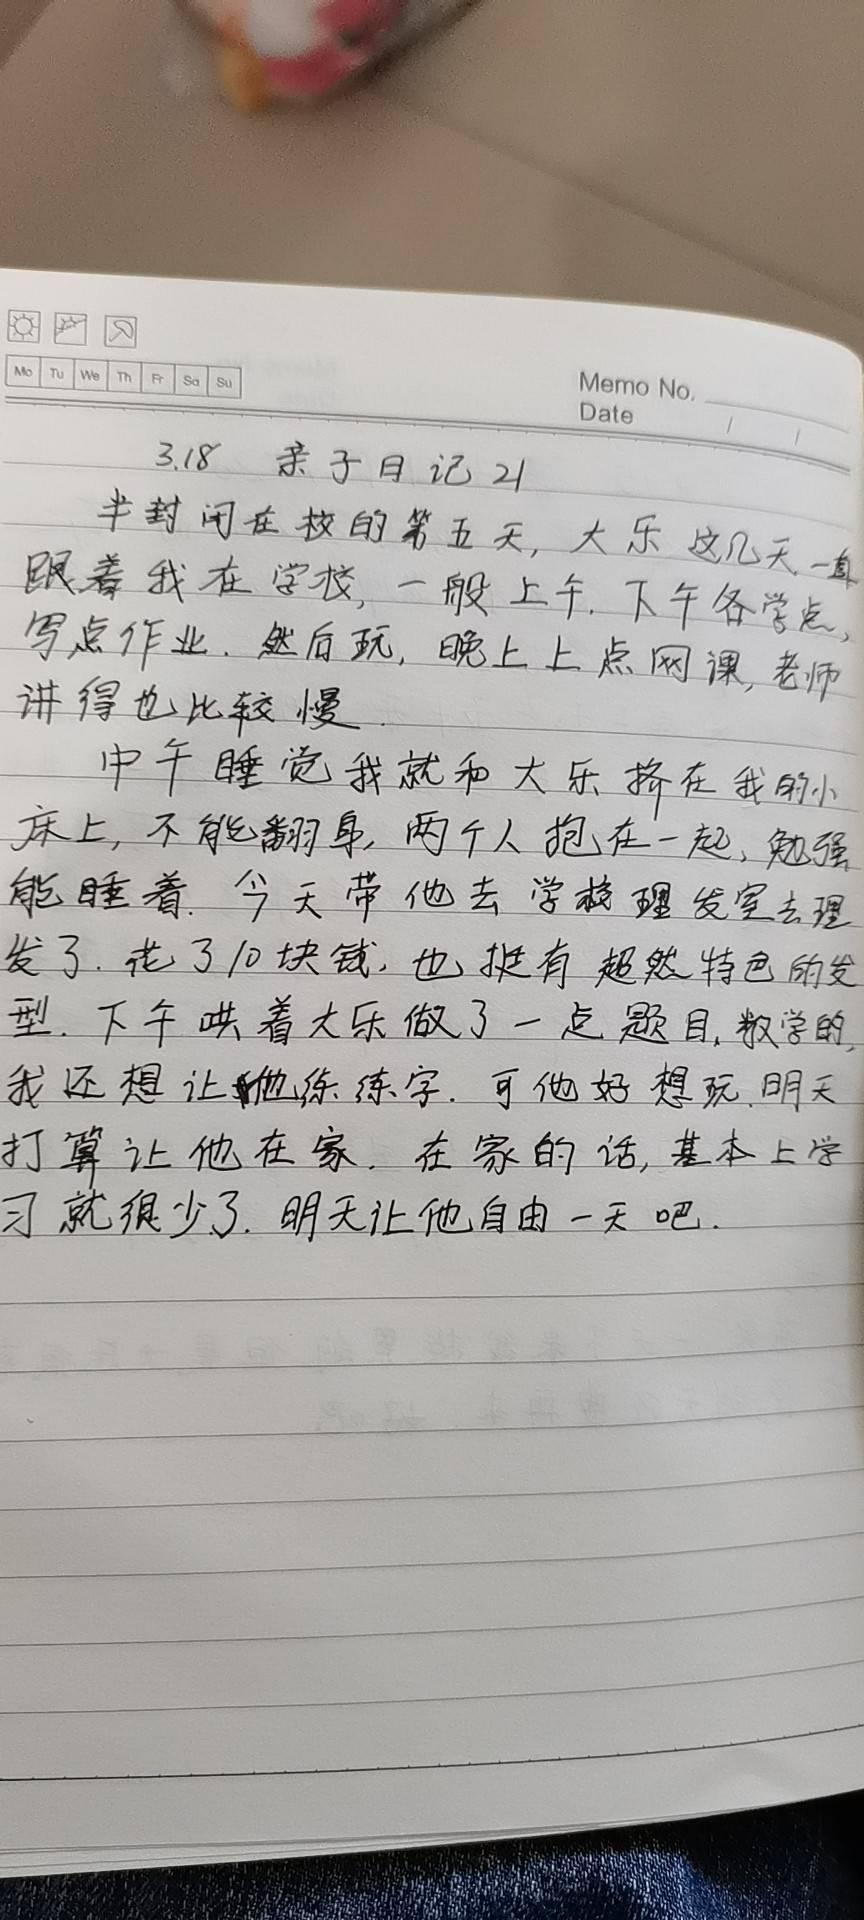 Mo Tu We Th Fr Sa Su
Memo No.
Date / /
3.18 亲子日记21
半封闭在校的第五天,大乐这几天一直
跟着我在学校,一般上午.下午各学点,
写点作业.然后玩,晚上上点网课,老师
讲得也比较慢.
中午睡觉我就和大乐挤在我的小
床上,不能翻身,两个人抱在一起,勉强
能睡着.今天带他去学校理发室去理
发了.花了10块钱,也挺有超然特色的发
型.下午哄着大乐做了一点题目,数学的,
我还想让他练练字.可他好想玩.明天
打算让他在家.在家的话,基本上学
习就很少了.明天让他自由一天吧.